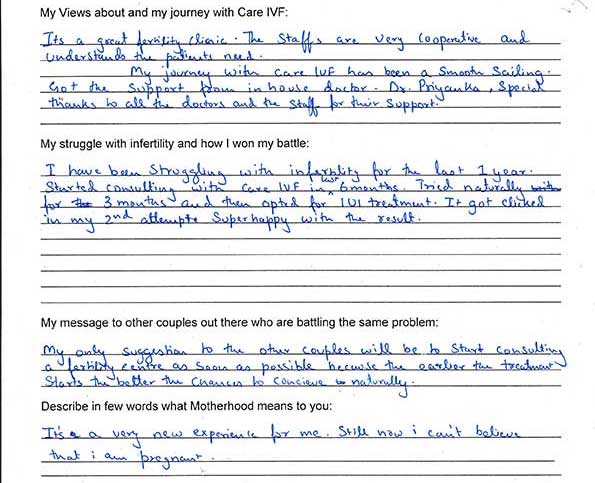 My Views about and my journey with Care IVF:
Its a great fertility clinic. The Staffs are very cooperative and
understands the patients need.
My journey with Care IVF has been a Smooth Sailing.
Got the Support from in house doctor - Dr. Priyanka, Special
thanks to all the doctors and the Staff for their Support.
My struggle with infertility and how I won my battle:
I have been Struggling with infertility for the last 1 year.
Started consulting with Care IVF in last 6 months. Tried naturally
for 3 months and then opted for IUI treatment. It got clicked
in my 2nd attempt. Super happy with the result.
My message to other couples out there who are battling the same problem:
My only suggestion to the other couples will be to Start consulting
a fertility centre as soon as possible because the earlier the treatment
Starts the better the chances to concieve naturally.
Describe in few words what Motherhood means to you:
It's a very new experience for me. Still now i can't believe
that i am pregnant.